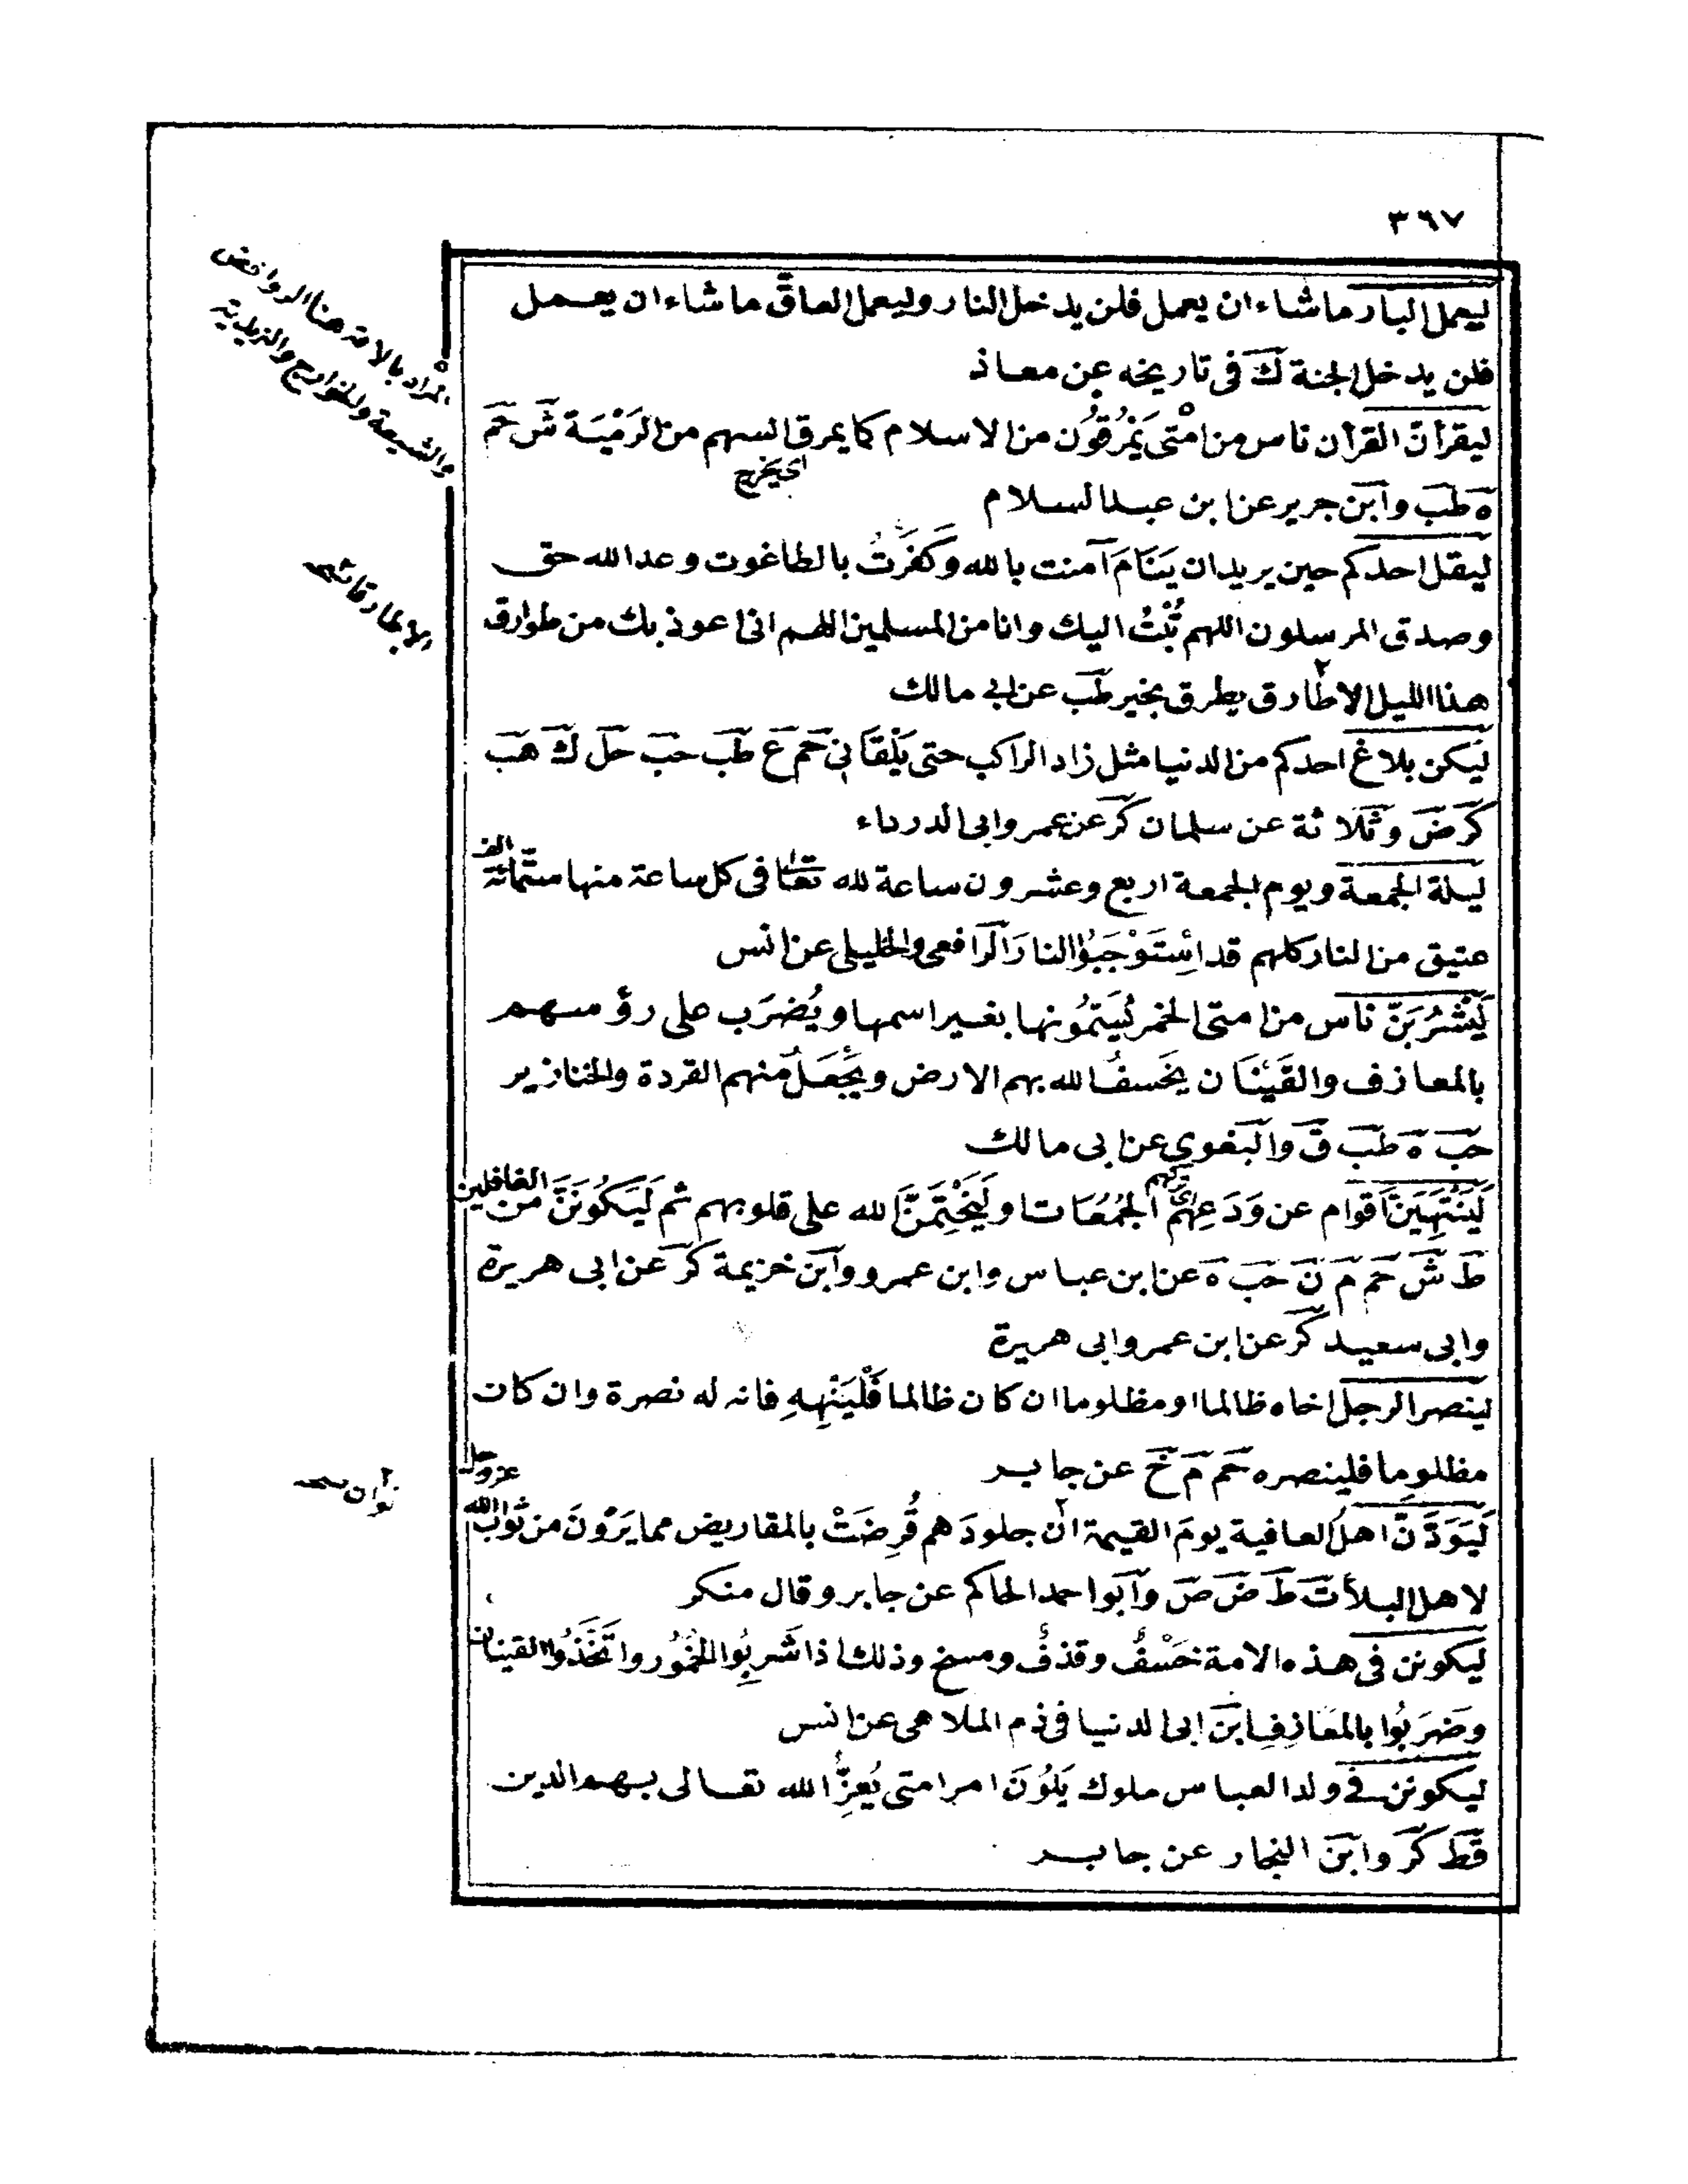 ٣٦٧
ليعمل البار ما شاء ان يعمل فلن يدخل النار وليعمل العاقّ ما شاء ان يعمل
فلن يدخل الجنة ك في تاريخه عن معاذ
ليقرأنّ القرأن ناس من امتى يَمْرُقُون من الاسلام كما يمرق السهم من الرَمْيَة ش حم
اى يخرج
ه طب وابن جرير عن ابن عبد السلام
ليقل احدكم حين يريد ان يَنَامَ آمنت بالله وَكَفَرَتُ بالطاغوت وعد الله حق
وصدق المرسلون اللهم تُبْتُ اليك وانا من المسلمين اللهم انى اعوذ بك من طوارق
هذا الليل الا طارق يطرق بخير طب عن ابى مالك
ليكن بلاغ احدكم من الدنيا مثل زاد الراكب حتى يَلْقَانِى حم ع طب حب حل ك هب
كر ض وثلاثة عن سلمان كر عن عمر وابى الدرداء
ليلة الجمعة ويوم الجمعة اربع وعشرون ساعة لله تعا فى كل ساعة منها ستمائة الف
عتيق من النار كلهم قد اسْتَوْجَبُوا النار الرافعى والخليلى عن انس
لَيَشْرُبَنّ ناس من امتى الخمر يُسَمُّونها بغير اسمها ويُضرَب على رؤسهم
بالمعازف والقَيْنَان يخسفُ الله بهم الارض ويَجْعَلُ منهم القردة والخنازير
حب ه طب ق والبغوي عن ابى مالك
لَيَنْتَهِيَنّ اقوام عن وَدَعِهِم الجُمُعَات او لَيَخْتِمَنَّ الله على قلوبهم ثم لَيَكُونَنَّ من الغافلين
اى تركهم
ط ش حم م ن حب ه عن ابن عباس وابن عمرو وابن خزيمة كر عن ابى هريرة
وابى سعيد كر عن ابن عمر وابى هريرة
لينصر الرجل اخاه ظالما او مظلوما ان كان ظالما فَلْيَنْهِهِ فانه له نصرة وان كان
مظلوما فلينصره حم م خ عن جابر
لَيَوَدَّنَّ اهلُ العافية يومَ القيمة ان جلودَهم قُرِضَتْ بالمقاريض مما يَرَوْنَ من ثواب الله عزوجل
لاهل البلأ ت ط ض ص وابو احمد الحاكم عن جابر وقال منكر
ليكونن فى هذه الامة خَسْفٌ وقذفٌ ومسخ وذلك اذا شَرِبُوا الخُمُور واتَّخَذُوا القينان
وضَرَبُوا بالمعَازِف ابن ابى الدنيا فى ذم الملاهى عن انس
ليكونن فى ولد العباس ملوك يَلُونَ امر امتى يُعِزُّ الله تعالى بهم الدين
قط كر وابن النجار عن جابر
المراد بالامة هنا الروافض
والشيعة والخوارج والزيدية